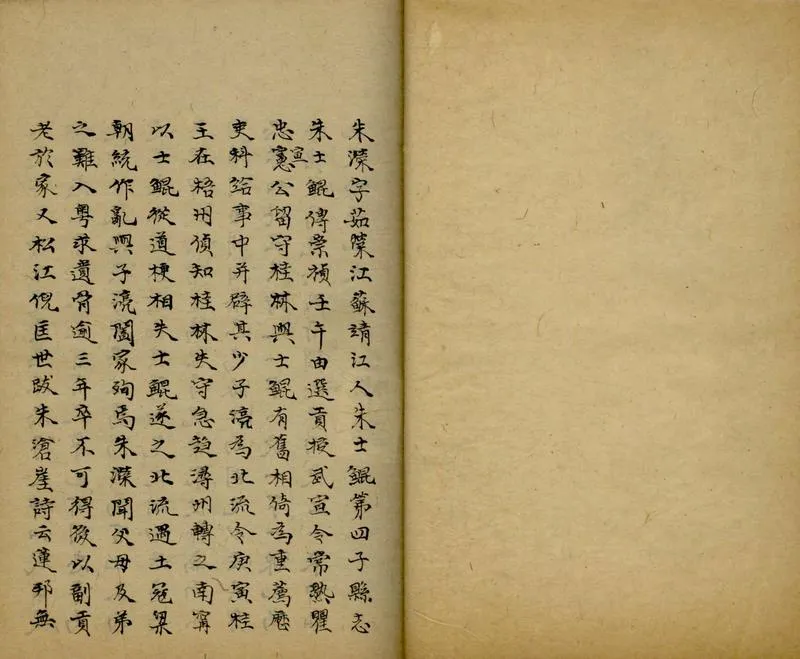 朱濚字茹濚江蘇靖江人朱士鯤第四子縣志
朱士鯤傳崇禎壬午由選貢授武宣令常熟瞿
忠宣憲公留守桂林與士鯤有舊相倚為重薦歷
吏科給事中并辟其少子湸為北流令庚寅桂
王在梧州偵知桂林失守急趋潯州轉之南甯
以士鯤從道梗相失士鯤遂之北流遇土寇梁
朝統作亂與子湸闔家殉焉朱濚聞父母及弟
之難入粤求遺骨逾三年卒不可得後以副貢
老於家又松江倪匡世跋朱滄崖詩云蓮邦無